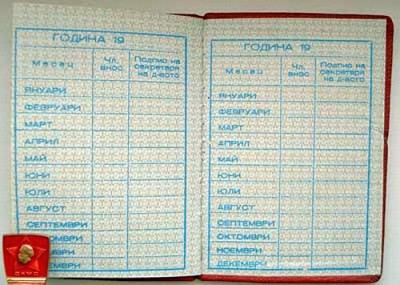 ГОДИНА 19
Месец
Чл. внос
Подпис на секретаря на д-вото
ЯНУАРИ
ФЕВРУАРИ
МАРТ
АПРИЛ
МАЙ
ЮНИ
ЮЛИ
АВГУСТ
СЕПТЕМВРИ
ОКТОМВРИ
НОЕМВРИ
ДЕКЕМВРИ
ГОДИНА 19
Месец
Чл. внос
Подпис на секретаря на д-вото
ЯНУАРИ
ФЕВРУАРИ
МАРТ
АПРИЛ
МАЙ
ЮНИ
ЮЛИ
АВГУСТ
СЕПТЕМВРИ
ОКТОМВРИ
НОЕМВРИ
ДЕКЕМВРИ
ДКМС